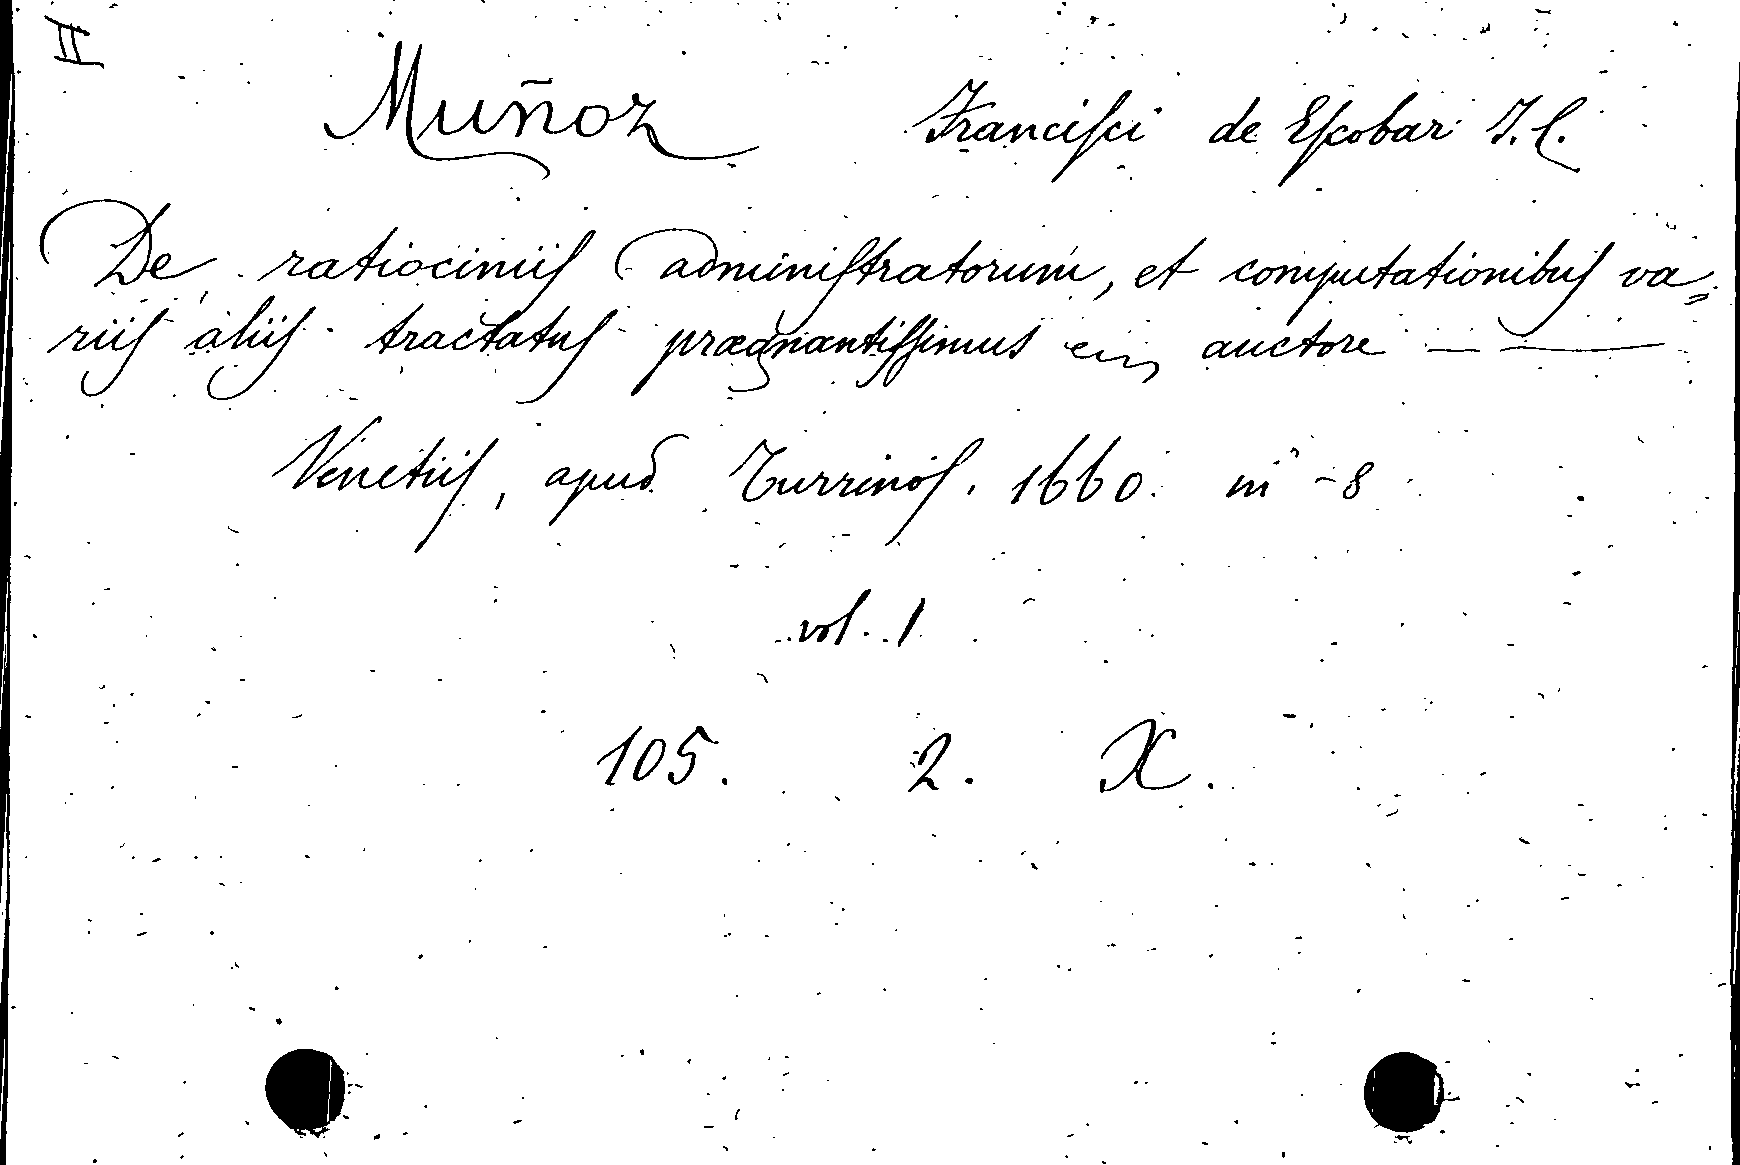 II
Muñoz Franciſci de Eſcobar J. C.
De ratiociniiſ adminiſtratorum, et computationibuſ va„
riiſ aliiſ tractatuſ prægnantiſſimus auctore — —
Venetiiſ, apud Turrinoſ. 1660. in -8
vol. 1
105. 2. X.